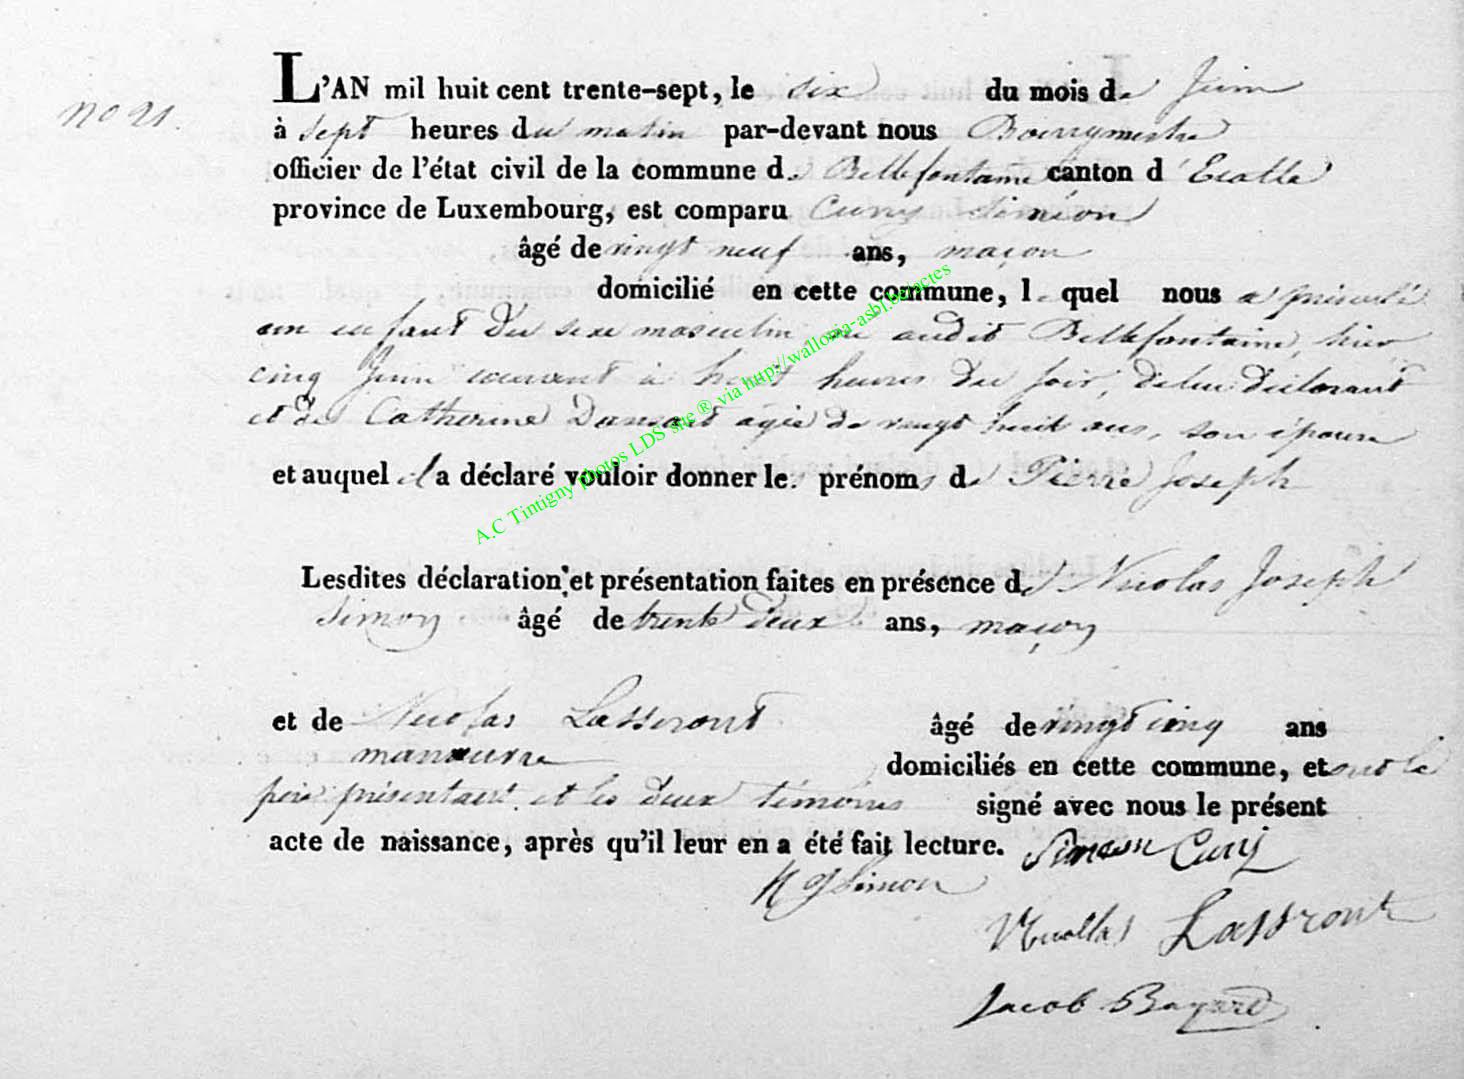 L'AN mil huit cent trente-sept, le six du mois de Juin
no 21.
à sept heures du matin par-devant nous Bourgmestre
officier de l'état civil de la commune de Bellefontaine canton d'Etalle
province de Luxembourg, est comparu Cuny Siméon
âgé de vingt neuf ans, maçon
domicilié en cette commune, lequel nous a présenté
un enfant du sexe masculin, né audit Bellefontaine, hier
cinq Juin courant à huit heures du soir, de lui déclarant
et de Catherine Dansart agée de vingt huit ans, son épouse
et auquel il a déclaré vouloir donner les prénoms de Pierre Joseph
A.C Tintigny photos LDS site ® via http://wallonia-asbl.be/actes
Lesdites déclaration et présentation faites en présence de Nicolas Joseph
Simon âgé de trente deux ans, maçon
et de Nicolas Lasseront âgé de vingt cinq ans
manœuvre domiciliés en cette commune, et ont le
père présentant et les deux témoins signé avec nous le présent
acte de naissance, après qu'il leur en a été fait lecture. Simeon Cuny
N J Simon
Nicollas Lassront
Jacob Bayard